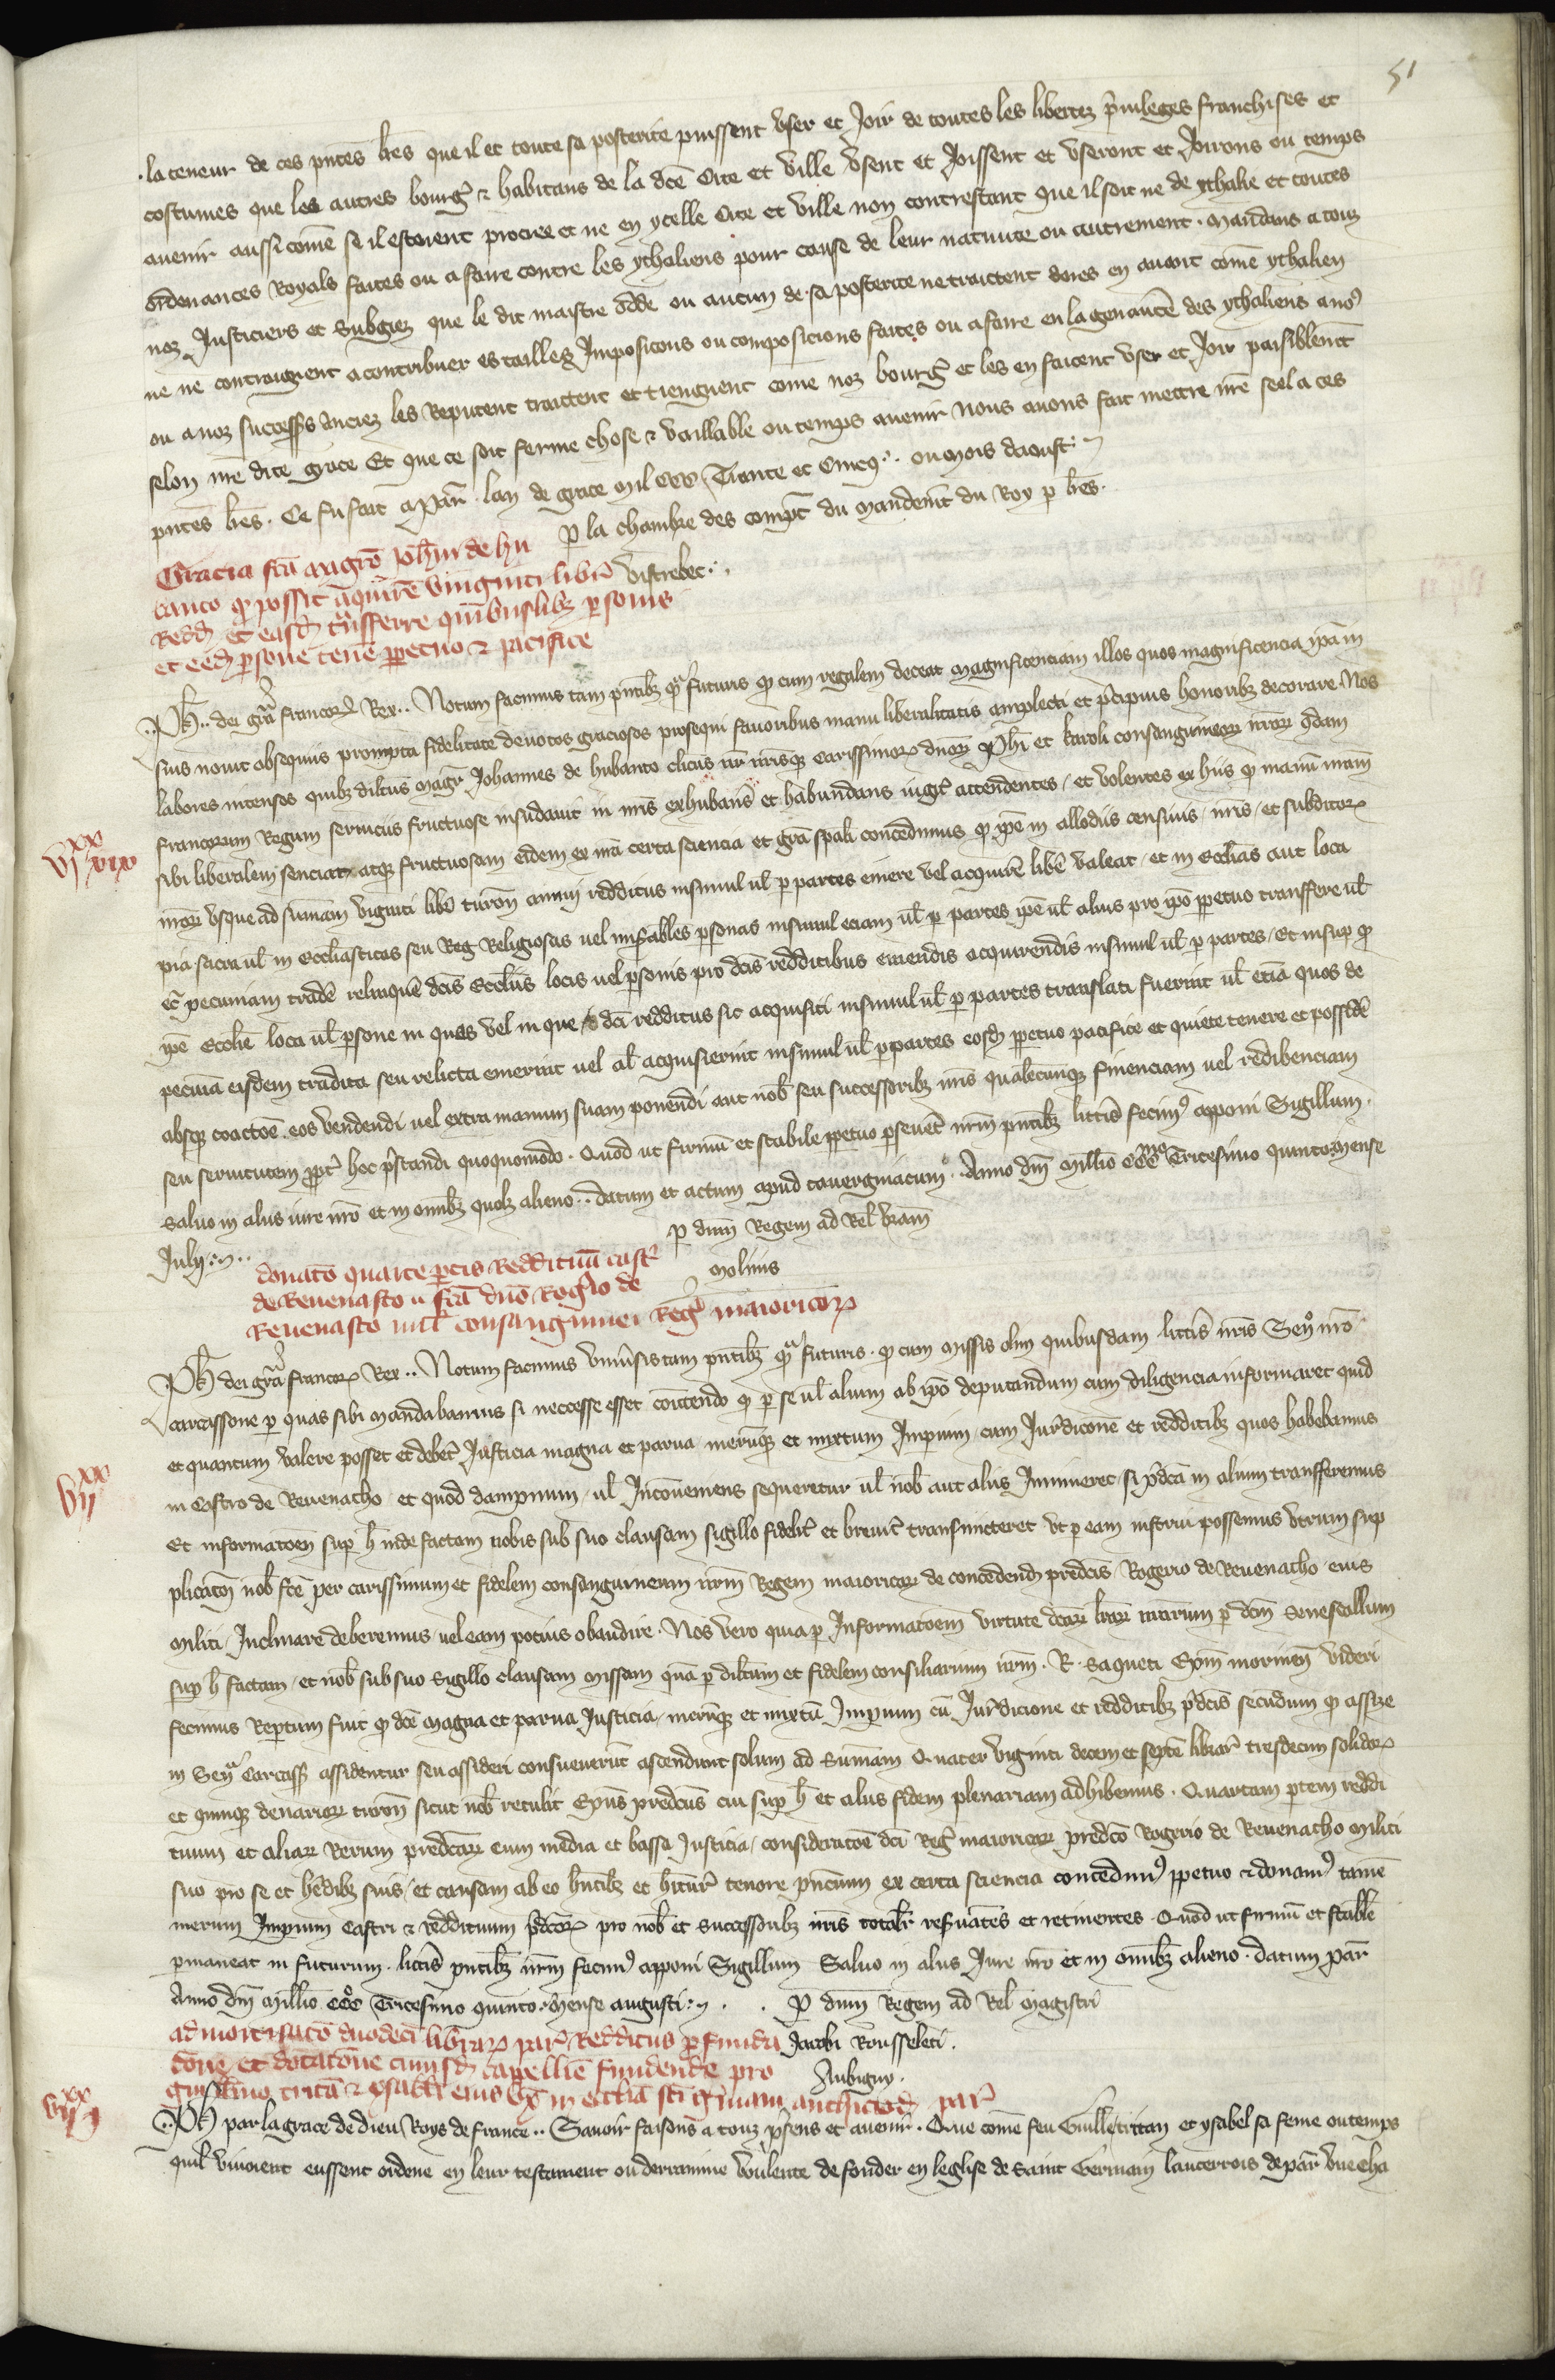 51
la teneur de ces pñtes lr̃es que il et toute sa posterite puissent vser et Joir de toutes les libertez p̃uileges franchises et
costumes que les autres bourg̃ & habitans de la dc̃e Cite et ville vsent et Joissent et vseront et Joirons ou temps
auenir aussi com̃e se il estoient procree et ne en ycelle Cite et ville non contrestant que il soit ne de ythalie et toutes
ordenances Royals faites ou a faire contre les ythaliens pour cause de leur natiuite ou autrement. Mandans a touz
noz Justiciers et Subgiez que le dit maistre odde ou aucun de sa posterite ne traictent dores en auant com̃e ythalien
ne ne contraignent a contribuer es tailles Imposicions ou composicions faites ou a faire en la gen des ythaliens a no9
ou a noz success̃s Ancrez les Reputent traictent et tiengnent com̃e noz bourg̃ et les en facent vser et Joir paisiblem̃t
selon nr̃e dite grace Et que ce soit ferme chose & vaillable ou temps auenir Nous auons fait mettre nr̃e seel a ces
pñtes lr̃es. Ce fu fait a Par̃ lan de grace mil CCC Trante et Cincq. ou mois daoust.
p la chambre des compt̃ du mandem̃t du Roy p lr̃es.
Vistrebec.
Gracia fc̃a magr̃o Joh̃i de hu
banto q possit acquirẽ viginti libr̃
Redd̃ et easd̃ tr̃nsferre quibuslib; personis
et eed̃ persone tenẽ ppetuo & pacifice
Ph̃.. dei gr̃a francor̃ Rex.. Notum facimus tam pñtib; q̃ futuris q cum regalem deceat magnificenciam illos quos magnificencia ip̃am
suis nouit obsequiis prompta fidelitate deuotos graciosos prosequi fauoribus manu liberalitatis amplecti et p̃cipuis honorib; decorare. Nos
labores intensos quib; dilc̃us magr̃ Johannes de hubanto clicus nr̃ nr̃isq; carissimor̃ dñor̃ Ph̃i et karoli consanguineor̃ nr̃or̃ q̃dam
francorum Regum seruiciis fructuose insudauit in nr̃is exhubans et habundans iugit̃ attendentes / et volentes ex hiis q manũ nr̃am
vi xx xix
sibi liberalem senciat, atq; fructuosam eidem ex nr̃a certa sciencia et gr̃a sp̃ali concedimus q ip̃e in allodiis censiuis / nr̃is / et subditor̃
nr̃or̃ vsque ad sum̃am viginti libr̃ turoñ annui redditus insimul ul̃ p partes emere vel acquirẽ libẽ valeat / et in Ecclias aut loca
pia sacra ul̃ in Ecclesiasticas seu Reg Religiosas uel mis̃ables p̃sonas insimul eciam ul̃ p partes ip̃e ul̃ alius pro ip̃o ppetuo transffere ul̃
ec̃ pecuniam tradẽ relinquẽ dc̃is Eccl̃iis locis uel p̃sonis pro dc̃is redditibus emendis acquirendis insimul ul̃ p partes / Et insup q
ip̃e Eccl̃ie loca ul̃ p̃sone in quas vel in que dc̃i redditus sic acquisiti insimul ul̃ p partes translati fuerint ul̃ etiã quos de
pecuia eisdem tradita seu relicta emerint uel al̃ acquisierint insimul ul̃ p partes eosd̃ ppetuo pacifice et quiete tenere et possidẽ
absq; coactoẽ. eos vendendi uel extra manum suam ponendi aut nob̃ seu successorib; nr̃is qualecunq; financiam uel redibenciam
seu seruitutem ppt̃ hoc p̃standi quoquomodo. Quod ut firmũ et stabile ppetuo p̃seuet̃ nr̃m pñtib; litt̃is fecim9 apponi Sigillum.
Saluo in aliis iure nr̃o et in omĩb; quol; alieno.. datum et actum apud Tauergniacum. Anno dm̃ Millio CCCmo Tricesimo quinto mense
Julij..
p dnũ Regem ad Rel̃ vr̃am
Molinis
Donatõ quarte ptis Reddituũ cast̃
de Reuenasco fc̃a dnõ Rog̃io de
Reuenasco milt̃ consanguinei Reg̃ maioricor̃
Ph̃ dei gr̃a francor̃ Rex.. Notum facimus vniũsis tam pñtib; q̃ futuris. q cum missis olim quibusdam litt̃is nr̃is Sen̊ nr̃o
Carcassone p quas sibi mandabamus si neccesse esset com̃ttendo q p se ul̃ alium ab ip̃o deputandum cum diligencia informaret quid
et quantum valere posset et debet̃ Justicia magna et parua merũq; et mixtum Impium / cum Jur̃diconẽ et redditib; quos habebamus
vij xx
in Castro de Reuenacho / et quod dampnum / ul̃ Inconueniens sequeretur ul̃ nob̃ aut aliis Im̃ineret / si p̃dca in alium transfferemus
Et informatoẽm sup h̃ inde factam nobis sub suo clausam sigillo fidelit̃ et breuit̃ transmitteret vt p eam instrui possemus vtrum sup
plicatoĩ nob̃ fc̃e per carissimum et fidelem consanguineum nr̃m Regem maioricar̃ de concedend̃ p̃redc̃is / Rogerio de Reuenacho / eius
militi / Inclinare deberemus / uel eam pocius obaudire. Nos vero quia p Informatoẽm virtute dc̃ar̃ lr̃ar̃ nr̃arum p dc̃m Senescallum
sup h̃ factam / et nob̃ sub suo Sigillo clausam missam quã p dilc̃um et fidelem consiliarium nr̃m. R. Saqueti Ep̃m morineñ videri
fecimus Reptum fuit q dc̃e magna et parua Justicia / merũq; et mixtũ Impium cũ Jur̃dicione et redditib; p̃dc̃is secũdum q assize
in Sen̊ Carcass̃ assidentur seu assideri consueuerũt ascendunt solum ad Sum̃am Quater viginti decem et septẽ librar̃ tresdecim solidor̃
et quinq; denarior̃ turoñ sicut nob̃ retulit Ep̃us predc̃us cui sup h̃ et aliis fidem plenariam adhibemus. Quartam ptem reddi
tuum et aliar̃ Rerum predc̃ar̃ cum media et bassa Justicia / consideratoẽ dc̃i Reg̃ maioricar̃ predc̃o Rogerio de Reuenacho militi
suo pro se et her̃dib; suis / et causam ab eo hñtib; et hitur̃ tenore pñcium ex certa sciencia concedim9 ppetuo & donam9 tamẽ
merum Impium Castri & reddituum p̃dc̃or̃ pro nob̃ et successorib; nr̃is totalit̃ reser̃uãtes et retinentes. Quod ut firmũ et stabile
pmaneat in futurum. litt̃is pñtib; nr̃m fecim9 apponi Sigillum Saluo in aliis Jure nr̃o et in omĩb; alieno. datum par̃
Anno dm̃ Millio CCCo Tricesimo quinto. Mense augusti.. p dnũ Regem ad Rel̃ magistri
Jacobi Rousseleti.
Aubigny.
admortisatõ duodeci librar̃ par̃ / Redditus p funda
cione et dotatoẽ cuiusd̃ cappellie fundende pro
Guill̃mo tritã & ysabel̃ eius vx̃ in eccl̃ia sc̃i Germani anthisiod̃ par̃
vij xx j
Ph̃ par la grace de dieu Roys de france.. Sauoir faisons a touz p̃sens et auenir. Que com̃e feu Guill̃e tritan et ysabel sa fem̃e ou temps
quil viuoient eussent ordene en leur testament ou derrainne voulente de fonder en leglise de Saint Germain laucerrois de par̃ vne cha